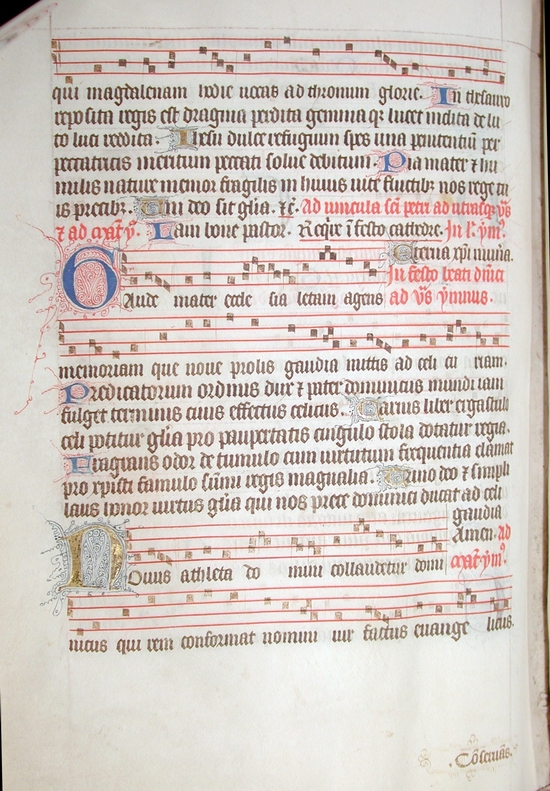 qui magdalenam hodie uocas ad thronum glorie. In thesauro
reposita regis est dragma perdita gemmaq; lucet inclita de lu
to luci reddita. Iesu dulce refugium spes una penitentium per
peccatricis meritum peccati solue debitum. Pia mater et hu
milis nature memor fragilis in huius uite fluctib; nos rege tu
is precib;. Uni deo sit glia. &c. Ad uincula sci petri ad utrasq; vs
& ad cpat. y. Iam bone pastor. Require i festo cathedre. In l. ymn.
Eterna xpi munera.
In festo beati dnici
Gaude mater eccle sia letam agens ad vs ymnus.
memoriam que noue prolis gaudia mittis ad celi cu riam.
Predicatorum ordinis dux et pater dominicus mundi iam
fulget terminis ciuis effectus celicus. Carnis liber ergastulo
celi potitur glia pro paupertatis cingulo stola dotatur regia.
Fragrans odor de tumulo cum uirtutum frequentia clamat
pro xpisti famulo summi regis magnalia. Trino deo et simpli
laus honor uirtus glia qui nos prece dominici ducat ad celi
gaudia
Amen. Ad
Nouus athleta do mini collaudetur domi cpat. ymn.
nicus qui rem conformat nomini uir factus euange licus.
. Coseruas.